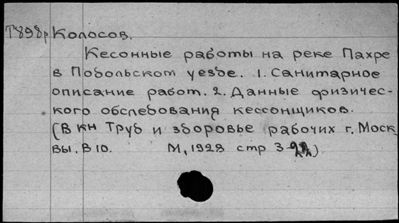 Т898р Колосов.
Кесонные работы на реке Пахре
в Подольском уезде. 1. Санитарное
описание работ. 2. Данные физичес-
кого обследования кессонщиков.
(В кн Труд и здоровье рабочих г. Моск
вы. В 10. М, 1928 стр 3-